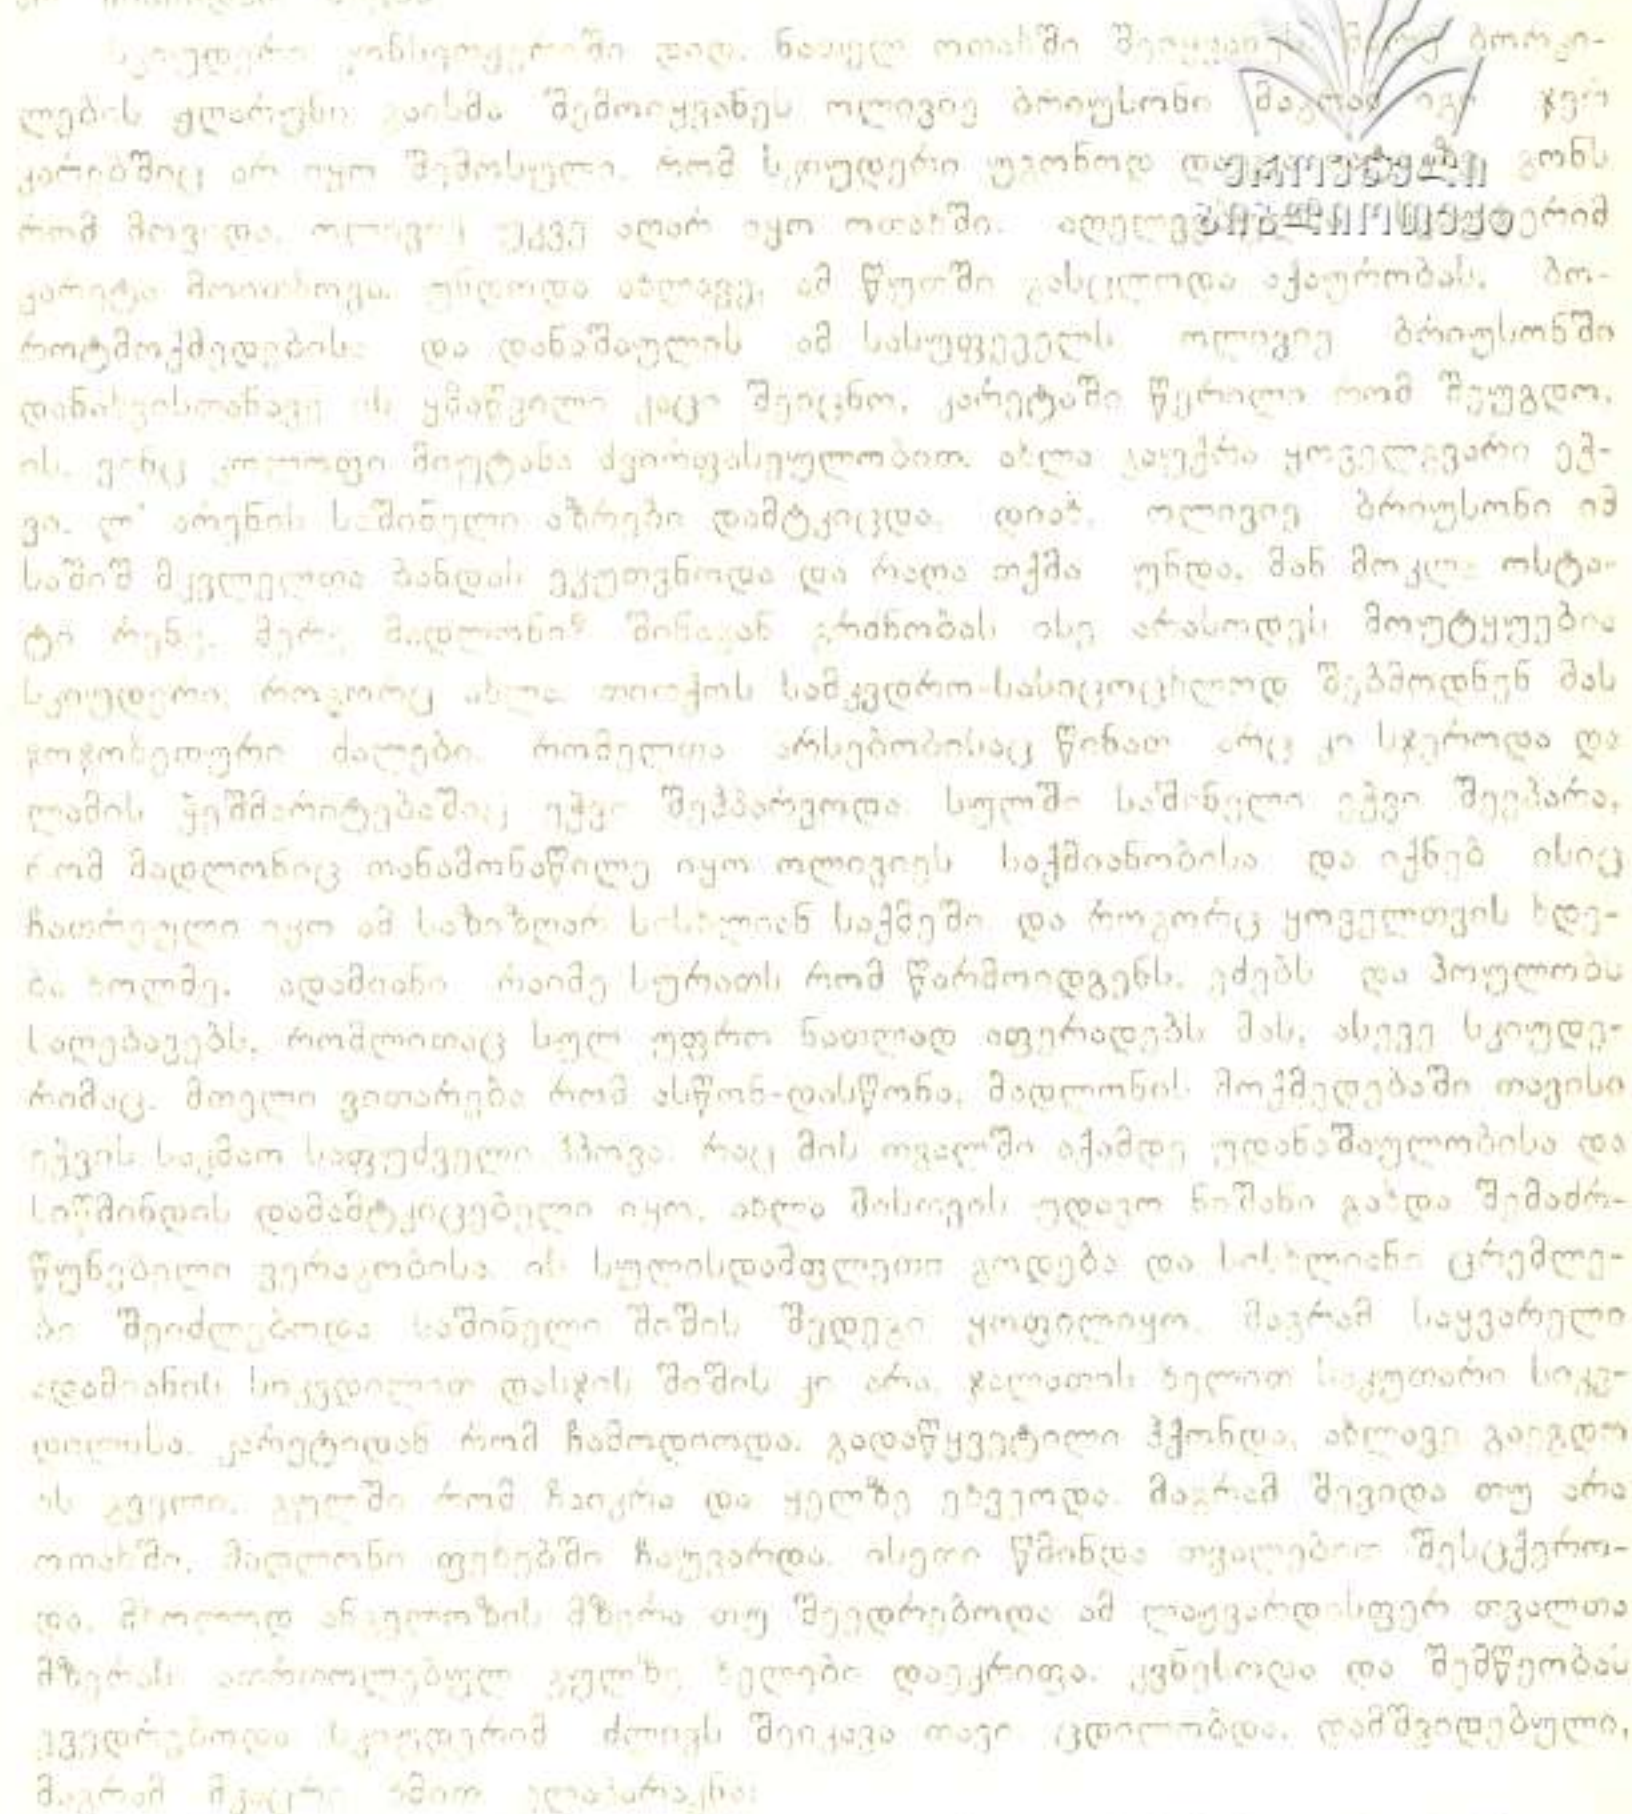 სკიუდერი კონსიერჟერიში დიდ, ნათელ ოთახში შეიყვანეს. მალე ბორკი-
ლების ჟღარუნი გაისმა შემოიყვანეს ოლივიე ბრიუსონი მაგრამ იგი ჯერ
კარებშიც არ იყო შემოსული, რომ სკიუდერი უგონოდ გონს
ეროვნული
რომ მოვიდა, ოლივიე უკვე აღარ იყო ოთახში.
ბიბლიოთეკა
კარეტა მოითხოვა. უნდოდა ახლავე, ამ წუთში გასცლოდა აქაურობას, ბო-
როტმოქმედებისა და დანაშაულის ამ სასუფეველს ოლივიე ბრიუსონში
დანახვისთანავე ის ყმაწვილი კაცი შეიცნო, კარეტაში წერილი რომ შეუგდო,
ის, ვინც კოლოფი მიუტანა ძვირფასეულობით. ახლა გაუქრა ყოველგვარი ეჭ-
ვი. ლ' არენის საშინელი აზრები დამტკიცდა. დიახ, ოლივიე ბრიუსონი იმ
საშიშ მკვლელთა ბანდას ეკუთვნოდა და რაღა თქმა უნდა, მან მოკლა ოსტა-
ტი რენე. მერე მადლონი? შინაგან გრძნობას ისე არასოდეს მოუტყუებია
სკიუდერი, როგორც ახლა თითქოს სამკვდრო-სასიცოცხლოდ შებმოდნენ მას
ჯოჯოხეთური ძალები, რომელთა არსებობისაც წინათ არც კი სჯეროდა და
ლამის ჭეშმარიტებაშიც ეჭვი შეჰპარვოდა. სულში საშინელი ეჭვი შეეპარა,
რომ მადლონიც თანამონაწილე იყო ოლივიეს საქმიანობისა და იქნებ ისიც
ჩათრეული იყო ამ საზიზღარ სისხლიან საქმეში და როგორც ყოველთვის ხდე-
ბა ხოლმე, ადამიანი რაიმე სურათს რომ წარმოიდგენს, ეძებს და პოულობს
საღებავებს, რომლითაც სულ უფრო ნათლად აფერადებს მას, ასევე სკიუდე-
რიმაც, მთელი ვითარება რომ ასწონ-დასწონა, მადლონის მოქმედებაში თავისი
ეჭვის საკმაო საფუძველი ჰპოვა. რაც მის თვალში აქამდე უდანაშაულობისა და
სიწმინდის დამამტკიცებელი იყო, ახლა მისთვის უდავო ნიშანი გახდა შემაძრ-
წუნებელი ვერაგობისა. ის სულისდამფლეთი გოდება და სისხლიანი ცრემლე-
ბი შეიძლებოდა საშინელი შიშის შედეგი ყოფილიყო, მაგრამ საყვარელი
ადამიანის სიკვდილით დასჯის შიშის კი არა, ჯალათის ხელით საკუთარი სიკვ-
დილისა. კარეტიდან რომ ჩამოდიოდა, გადაწყვეტილი ჰქონდა, ახლავე გაეგდო
ის გველი, გულში რომ ჩაიკრა და ყელზე ეხვეოდა. მაგრამ შევიდა თუ არა
ოთახში, მადლონი ფეხებში ჩაუვარდა. ისეთი წმინდა თვალებით შესცქერო-
და, მხოლოდ ანგელოზის მზერა თუ შეედრებოდა ამ ლაჟვარდისფერ თვალთა
მზერას ათრთოლებულ გულზე ხელები დაეკრიფა, კვნესოდა და შემწეობას
ევედრებოდა სკიუდერიმ ძლივს შეიკავა თავი ცდილობდა, დამშვიდებული,
მაგრამ მკაცრი ხმით ელაპარაკნა: